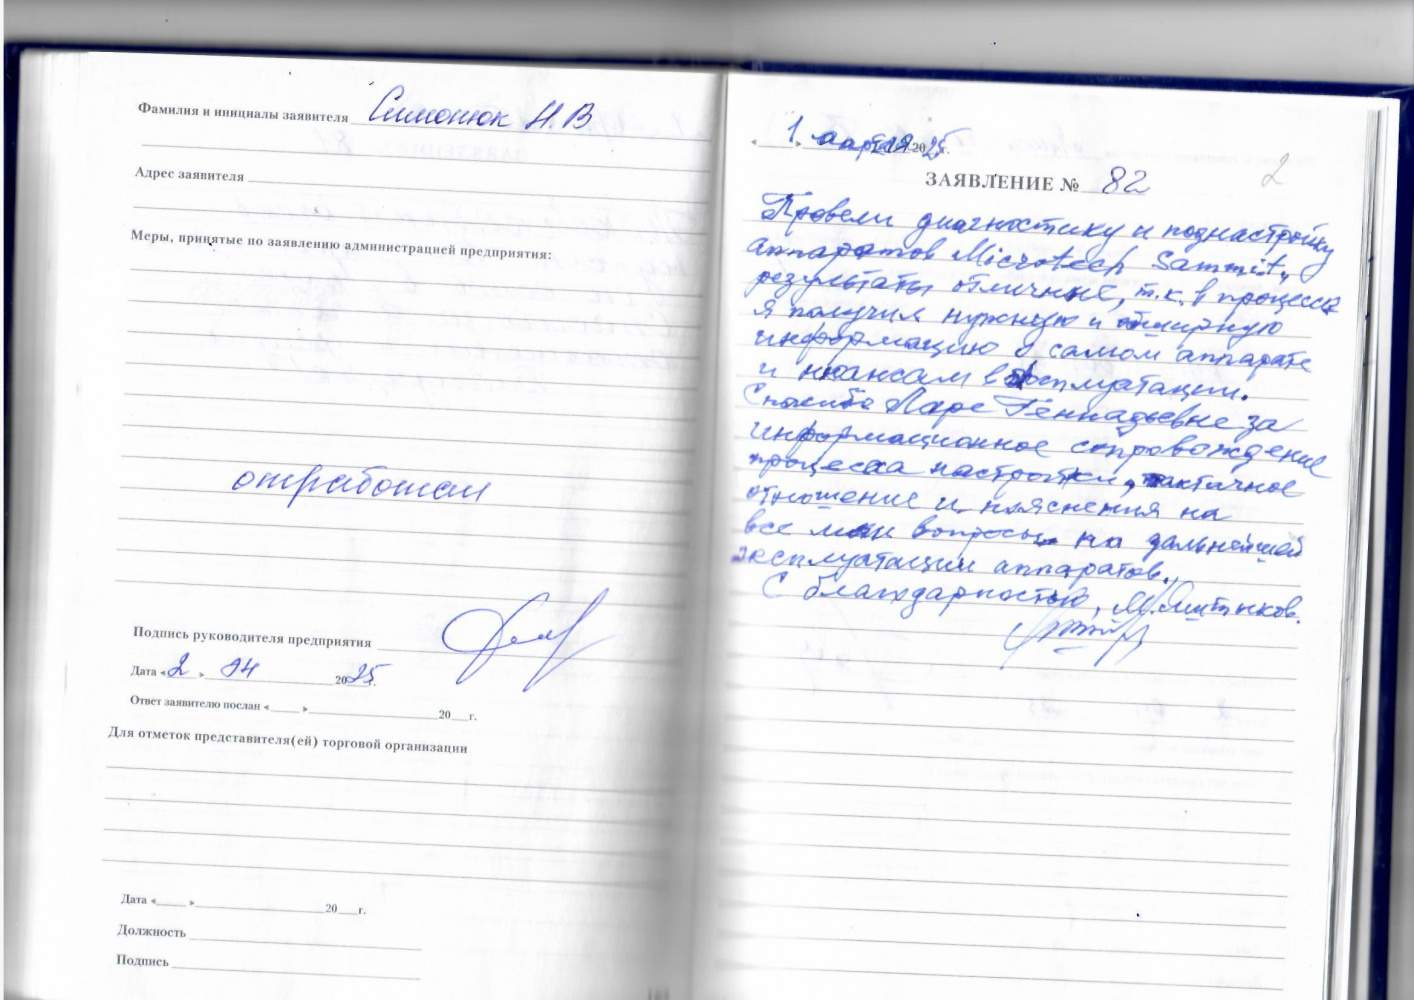 Фамилия и инициалы заявителя Симонюк Н.В
Адрес заявителя
Меры, принятые по заявлению администрацией предприятия:
отработан
Подпись руководителя предприятия
Дата «2 » 04 2025г.
Ответ заявителю послан « » 20 г.
Для отметок представителя(ей) торговой организации
Дата « » 20 г.
Должность
Подпись
« 1 » апреля 2025г.
ЗАЯВЛЕНИЕ № 82
2
Провели диагностику и поднастройку
аппаратов Microtech Sammit,
результаты отличные, т.к. в процессе
я получил нужную и обширную
информацию о самом аппарате
и нюансам в эксплуатации.
Спасибо Ларе Геннадьевне за
информационное сопровождение
процесса настройки, тактичное
отношение и пояснения на
все мои вопросы на дальнейшей
эксплуатации аппаратов.
С благодарностью, М.